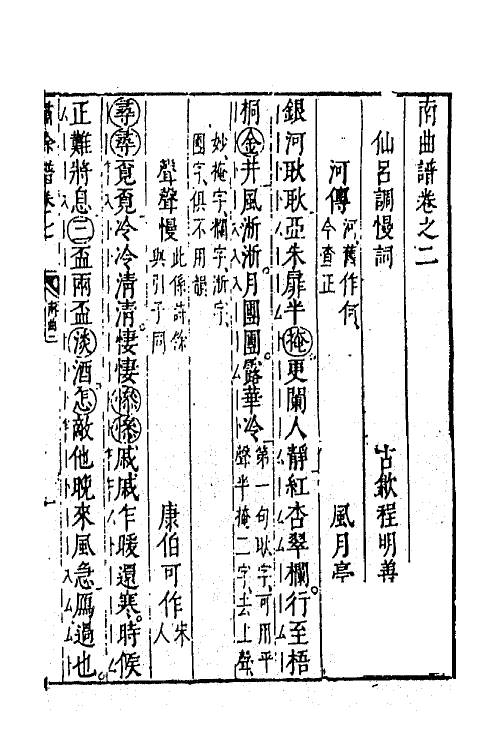 南曲譜卷之二
仙呂調慢詞　古歙程明善
河傳　河舊作何今查正　風月亭
銀河耿耿亞朱扉半掩更闌人靜紅杏翠欄行至梧
桐金井風淅淅月團團露華冷　第一句耿字可用平聲半掩二字去上聲
妙掩字欄字淅字團字俱不用韻
聲聲慢　此係詩餘與引子同　康伯可作宋人
尋尋覓覓冷冷清清悽悽慘慘戚戚乍暖還寒時候
正難將息三盃兩盃淡酒怎敵他晚來風急鴈過也
嘯餘譜卷七　南曲二